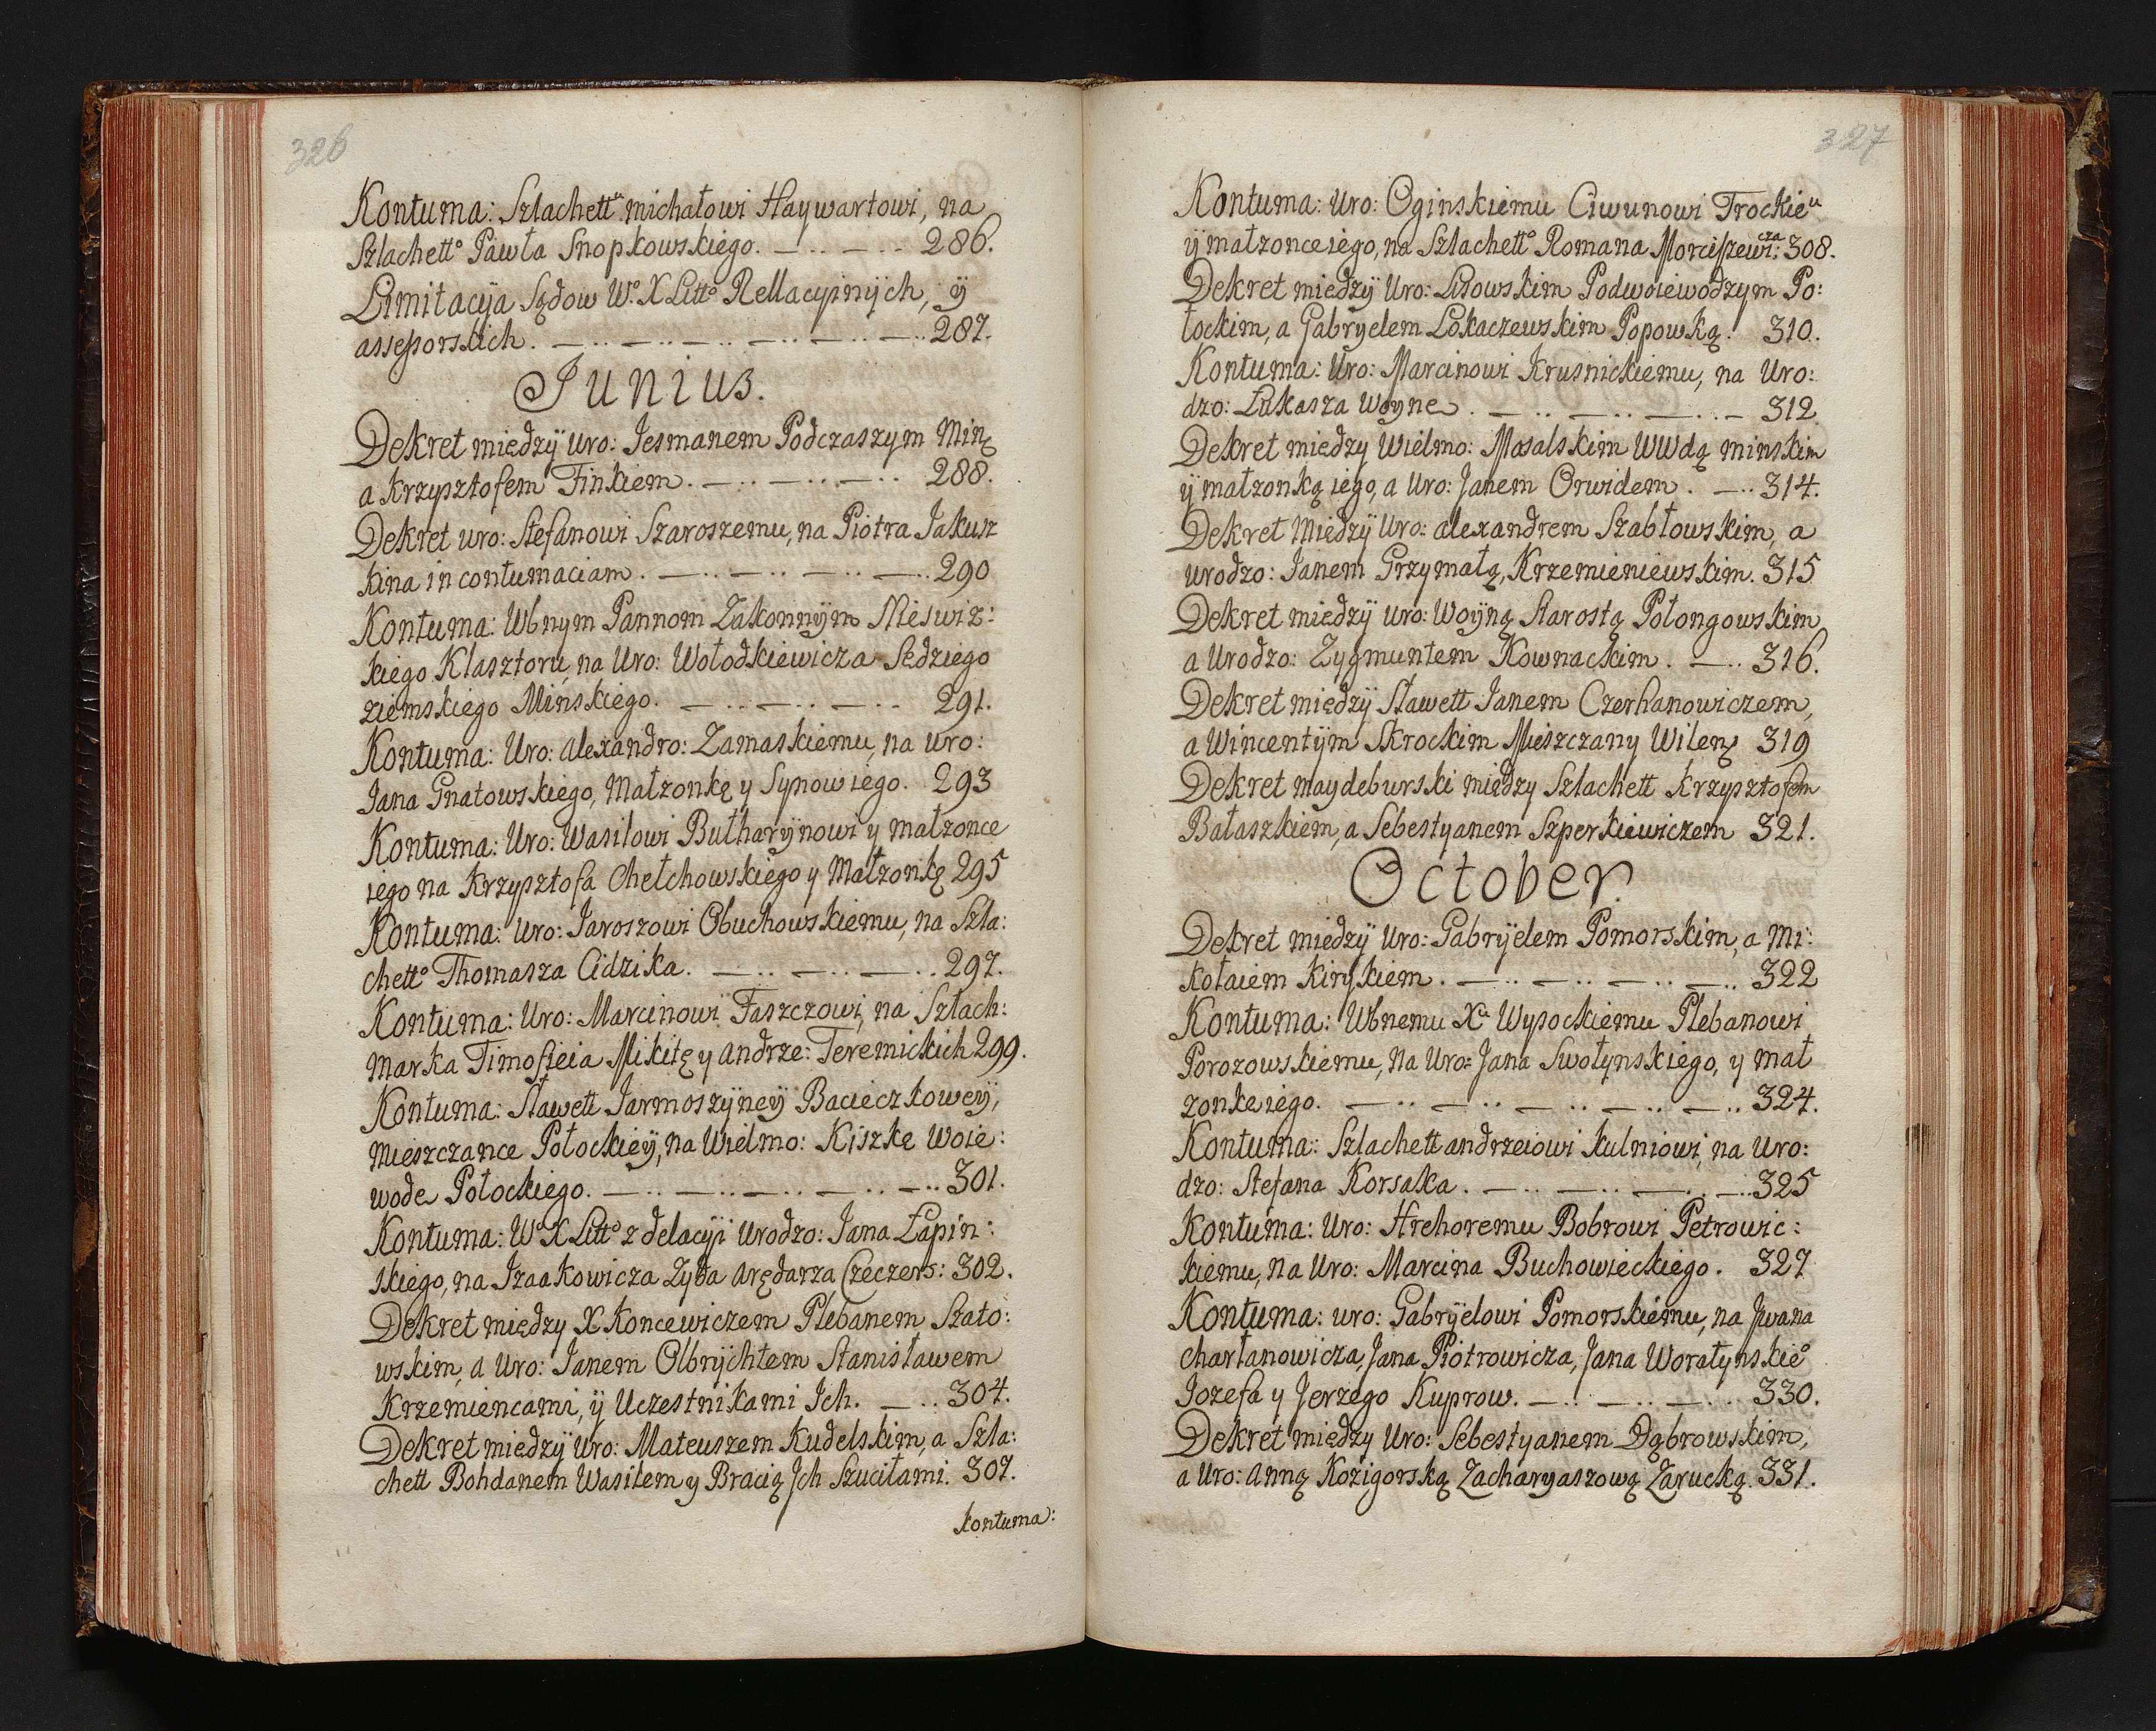 326
Kontuma: Szlachettu michałowi Haywartowi, na
Szlachetto Pawła Snopkowskiego. 286.
Limitacyja Sądow Wo X Litto Rellacyinÿch, ÿ
assessorskich. 287.
Junius.
Dekret międzÿ uro: Jesmanem Podczaszym Minę
a Krzysztofem Finkiem. 288.
Dekret uro: Stefanowi Szaroszemu, na Piotra Jakusz
kina in contumaciam. 290
Kontuma: Wbnym Pannom Zakonnÿm Nieswiz:
kiego Klasztoru, na Uro: Wołodkiewicza Sędziego
ziemskiego Mińskiego. 291.
Kontuma: Uro: Alexandro: Zamaskiemu, na uro:
Jana Gnatowskiego, Małzonkę y Synow iego. 293
Kontuma: Uro: Wasilowi Butharÿnowi y małzonce
iego na Krzysztofa Chełchowskiego y Małzonkę 295
Kontuma: Uro: Jaroszowi Obuchowskiemu, na Szla:
chetto Thomasza Cidzika. 297.
Kontuma: Uro: Marcinowi Faszczowi, na Szlach:
Marka Timofieia Mikitę y Andrze: Teremickich 299.
Kontuma: Sławett Jarmoszÿneÿ Bacieczkoweÿ,
Mieszczance Połockieÿ, na Wielmo: Kiszkę Woie:
wodę Połockiego. 301.
Kontuma: Wo X Litto z delacyi Urodzo: Jana Łapin:
skiego, na Izaakowicza Zyda Arędarza Czeczers: 302.
Dekret między X Koncewiczem Plebanem Szato:
wskim, a Uro: Janem Olbrÿchtem Stanisławem
Krzemiencami, ÿ Uczestnikami Jch. 304.
Dekret międzÿ Uro: Mateuszem Kudelskim, a Szla:
chett Bohdanem Wasilem y Bracią Jch Szuciłami. 307.
Kontuma:
327
Kontuma: Uro: Oginskiemu Ciwunowi Trockieu
ÿ małzonce iego, na Szlachetto Romana Morciszewicza: 308.
Dekret międzÿ Uro: Lisowskim Podwoiewodzym Po:
łockim, a Gabryelem Łokaczewskim Popowką. 310.
Kontuma: Uro: Marcinowi Krusnickiemu, na Uro:
dzo: Łukasza Woyne. 312
Dekret między Wielmo: Mosalskim WWdą minskim
ÿ małzonką iego, a Uro: Janem Orwidem. 314.
Dekret Międzÿ Uro: alexandrem Szabłowskim, a
urodzo: Janem Grzymałą, Krzemieniewskim. 315
Dekret międzÿ uro: Woÿną Starostą Połongowskim
a Urodzo: Zygmuntem Kownackim. 316.
Dekret międzÿ Sławett Janem Czerhanowiczem,
a Wincentÿm Skrockim Mieszczany Wileną 319
Dekret maydeburski między Szlachett Krzysztofem
Bałaszkiem, a Sebestyanem Szperkiewiczem 321.
October.
Dekret międzÿ Uro: Gabrÿelem Pomorskim, a Mi:
kołaiem Kirykiem. 322
Kontuma: Wbnemu Xu Wysockiemu Plebanowi
Porozowskiemu, na Uro: Jana Swołynskiego, y mał
zonke iego. 324.
Kontuma: Szlachett andrzeiowi Kulniowi, na Uro:
dzo: Stefana Korsaka. 325
Kontuma: Uro: Hrehoremu Bobrowi Petrowic:
kiemu, na Uro: Marcina Buchowieckiego. 327
Kontuma: uro: Gabrÿelowi Pomorskiemu, na Jwana
Charłanowicza, Jana Piotrowicza, Jana Worałynskieo
Jozefa y Jerzego Kuprow. 330.
Dekret między Uro: Sebestyanem Dąbrowskim,
a Uro: Anną Kozigorską Zacharyaszową Zarucką. 331.